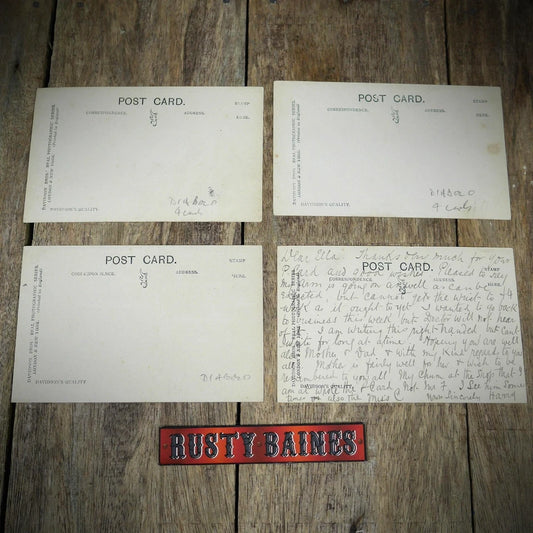 POST CARD.
STAMP
CORRESPONDENCE. ADDRESS. HERE.
DAVIDSON BROS' REAL PHOTOGRAPHIC SERIES.
LONDON & NEW YORK. (Printed in England)
DIABOLO
4 cards
DAVIDSON'S QUALITY.
POST CARD.
STAMP
CORRESPONDENCE. ADDRESS. HERE.
DAVIDSON BROS' REAL PHOTOGRAPHIC SERIES.
LONDON & NEW YORK. (Printed in England)
DIABOLO
4 cards
DAVIDSON'S QUALITY.
POST CARD.
STAMP
CORRESPONDENCE. ADDRESS. HERE.
DAVIDSON BROS' REAL PHOTOGRAPHIC SERIES.
LONDON & NEW YORK. (Printed in England)
DAVIDSON'S QUALITY.
DIABOLO
Dear Ella Thanks very much for your
P. Card and good wishes Pleased to say
my arm is going on as well as can be
but cannot get the wrist to
work as it ought to yet I wanted to go back
to business this week but Doctor will not hear
of it. I am writing this right handed but can't
write for long at a time Hoping you are well
also Mother & Dad & with my kind regards to you
all. Mother is fairly well & wish to be
remembered to you all My Chum at the
am at wrote me a Card, Not I see him some
times & also the Miss C Yours Sincerely Harold
POST CARD.
STAMP
HERE.
DAVIDSON'S QUALITY.
RUSTY BAINES